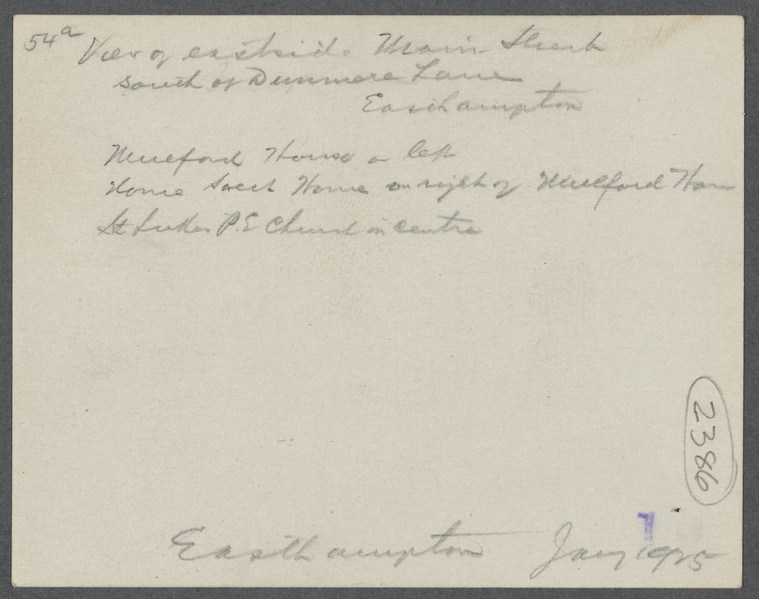 54a View of eastside Main Street
south of Dunmere Lane
Easthampton
Mulford House on left
Home Sweet Home on right of Mulford Hou
St Lukes P.E Church in centre
2386
Easthampton Jany 1925